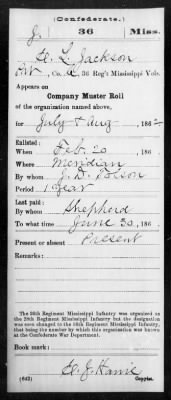 (Confederate.)
J. 36 Miss.
H. L. Jackson
Pvt, Co. A, 36 Reg't Mississippi Vols.
Appears on
Company Muster Roll
of the organization named above,
for July & Aug, 1862
Enlisted:
When Feb. 20, 186
Where Meridian
By whom J. D. Tolson
Period 1 Year
Last paid:
By whom Shepherd
To what time June 30, 186
Present or absent Present
Remarks:
The 36th Regiment Mississippi Infantry was organized as
the 38th Regiment Mississippi Infantry but the designation
was now changed to the 36th Regiment Mississippi Infantry,
that being the number by which this organization was known
at the Confederate War Department.
Book mark:
(642) Copyist.